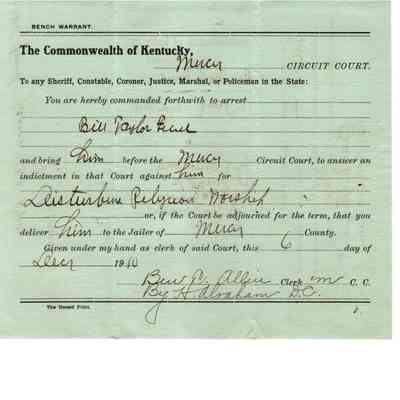 BENCH WARRANT.
The Commonwealth of Kentucky,
Mercer CIRCUIT COURT.
To any Sheriff, Constable, Coroner, Justice, Marshal, or Policeman in the State:
You are hereby commanded forthwith to arrest
Bill Taylor
and bring him before the Mercer Circuit Court, to answer an
indictment in that Court against him for
Disturbing Religious Worship
or, if the Court be adjourned for the term, that you
deliver him to the Jailer of Mercer County.
Given under my hand as clerk of said Court, this 6 day of
Decr 1910
Ben C. Allin Clerk m C. C.
By H Abraham D.C.